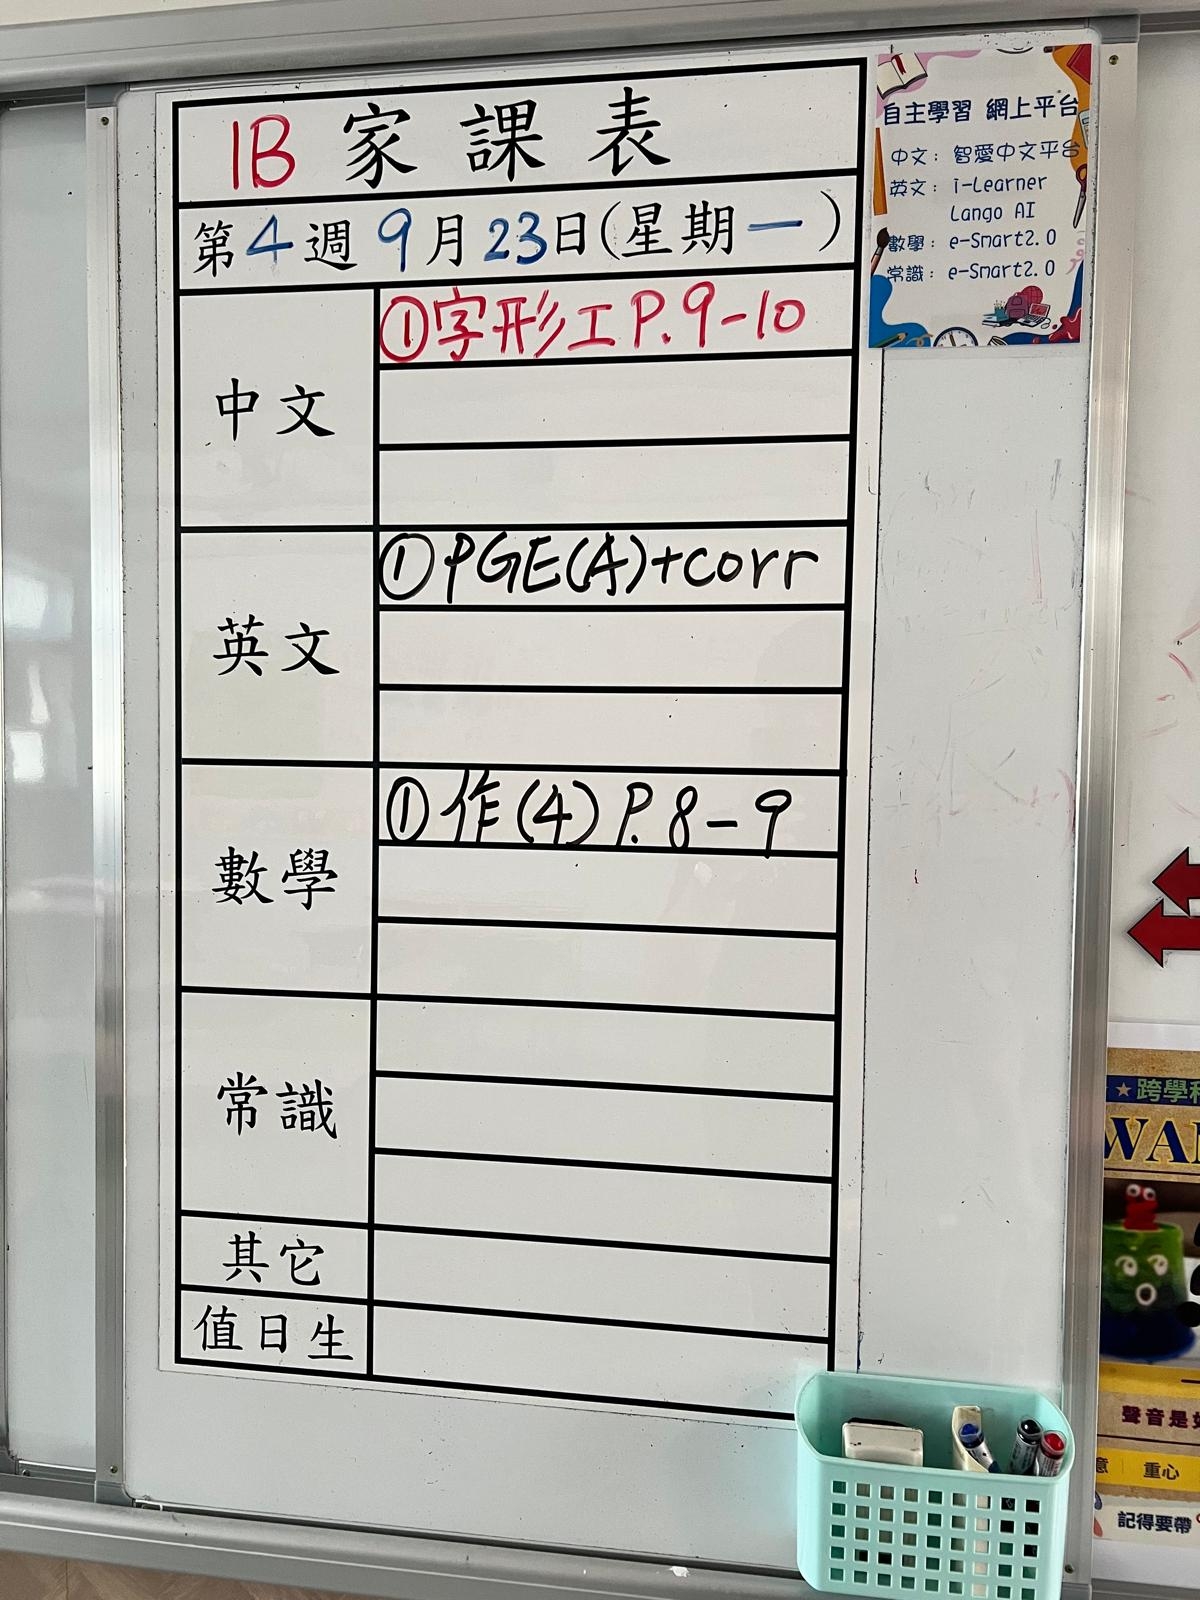 1B 家課表
第4週 9月23日(星期一)
中文
①字形工P.9-10
英文
①PGE(A)+corr
數學
①作(4)P.8-9
常識
其它
值日生
自主學習 網上平台
中文：智愛中文平台
英文：i-Learner
Lango AI
數學：e-Smart2.0
常識：e-Smart2.0
跨學科
WAN
聲音是
意 重心
記得要帶